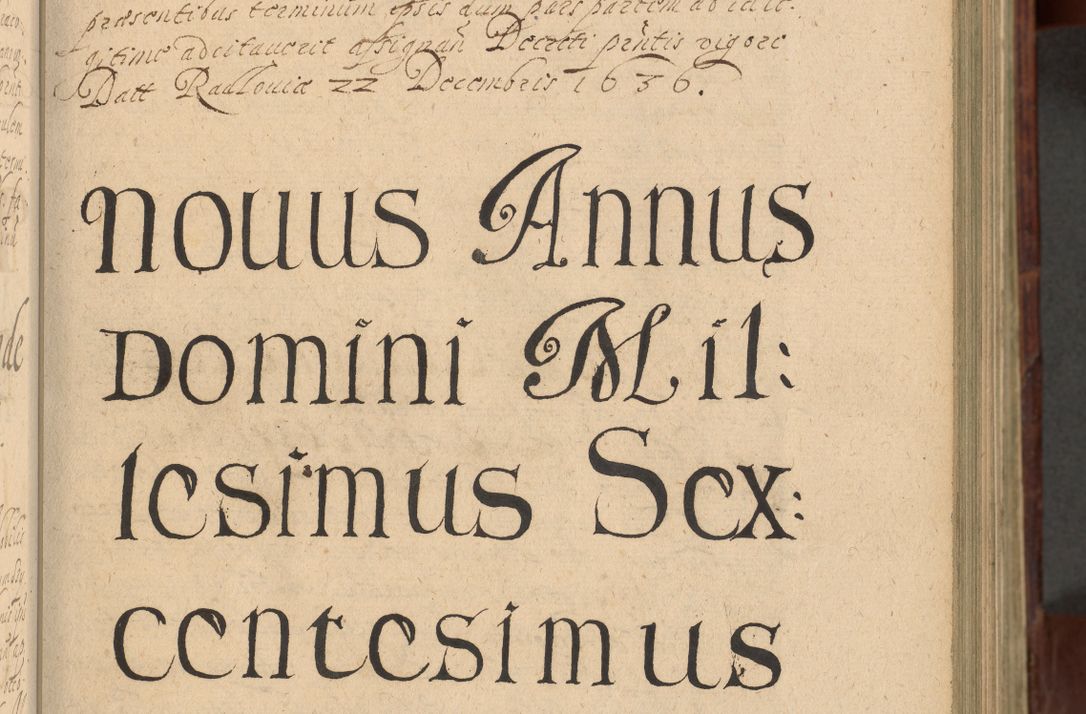 præsentibus terminum ipsis dum pars partem ad id le:
gitime adcitauerit assignan̄ Decreti pn̄tis vigore
Datt Radlouiæ 22 Decembris 1636.
Nouus Annus
Domini Mil:
lesimus Sex:
centesimus